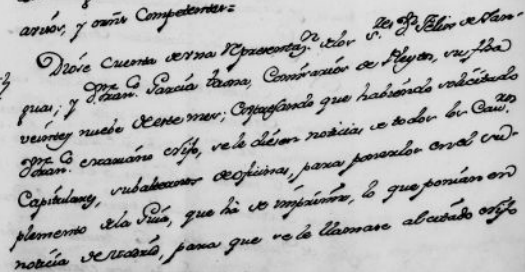 arios, y demas Competentes=
Diose cuenta de una Representaz.n de los S.res D.n Felix de San-
guas; y D.n Fran.co García Taona, Comisarios de Pleytos, su fha
veinte y nuebe de este mes; expresando que habiendo solicitado
D.n Fran.co Mariano Nifo, se le diesen noticias de todos los Cav.ros
Capitulares, subalternos de oficinas, para ponerlos en el su-
plemento de la Guia, que ha de imprimir, lo que ponian en
noticia de Madrid, para que se le llamase al citado Nifo